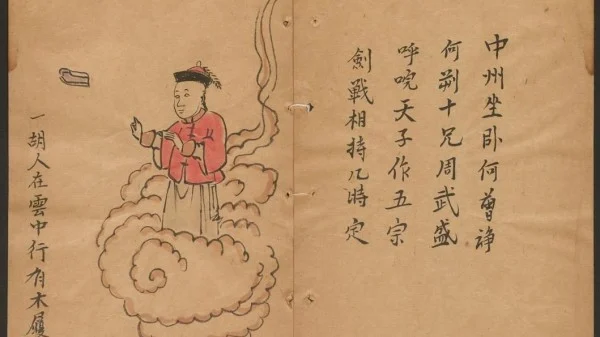 中州坐卧何曾諍
何朔十兄周武盛
呼天子作五宗
劍戰相持几時定
一胡人在雲中行有木履